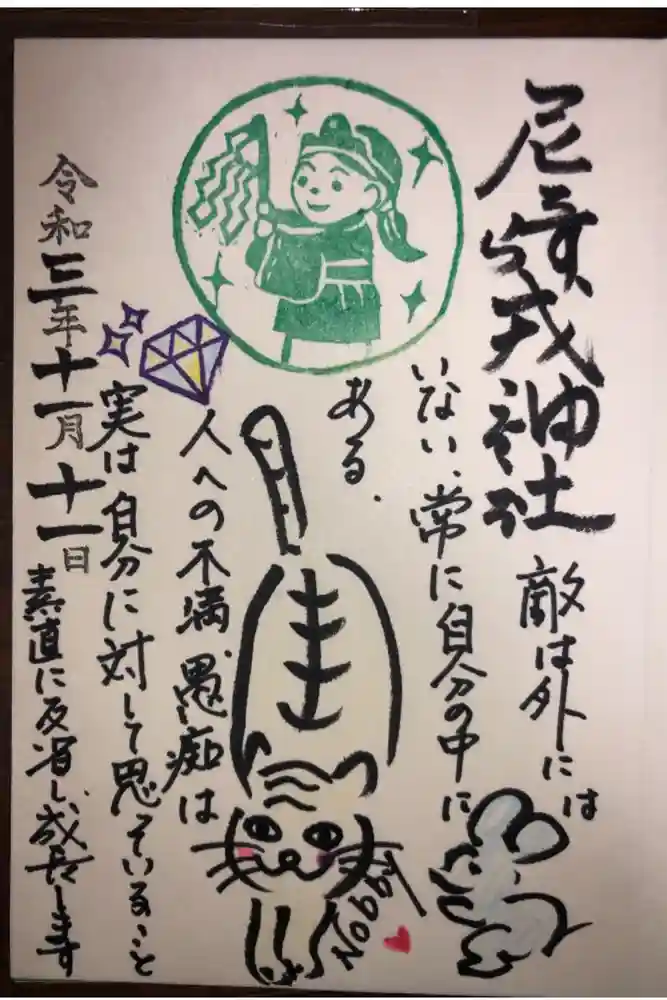 尼﨑戎神社
敵は外には
いない、常に自分の中に
ある、
人への不満、愚痴は
実は自分に対して思っていること
素直に反省し、成長します
令和三年十一月十一日
Nobby